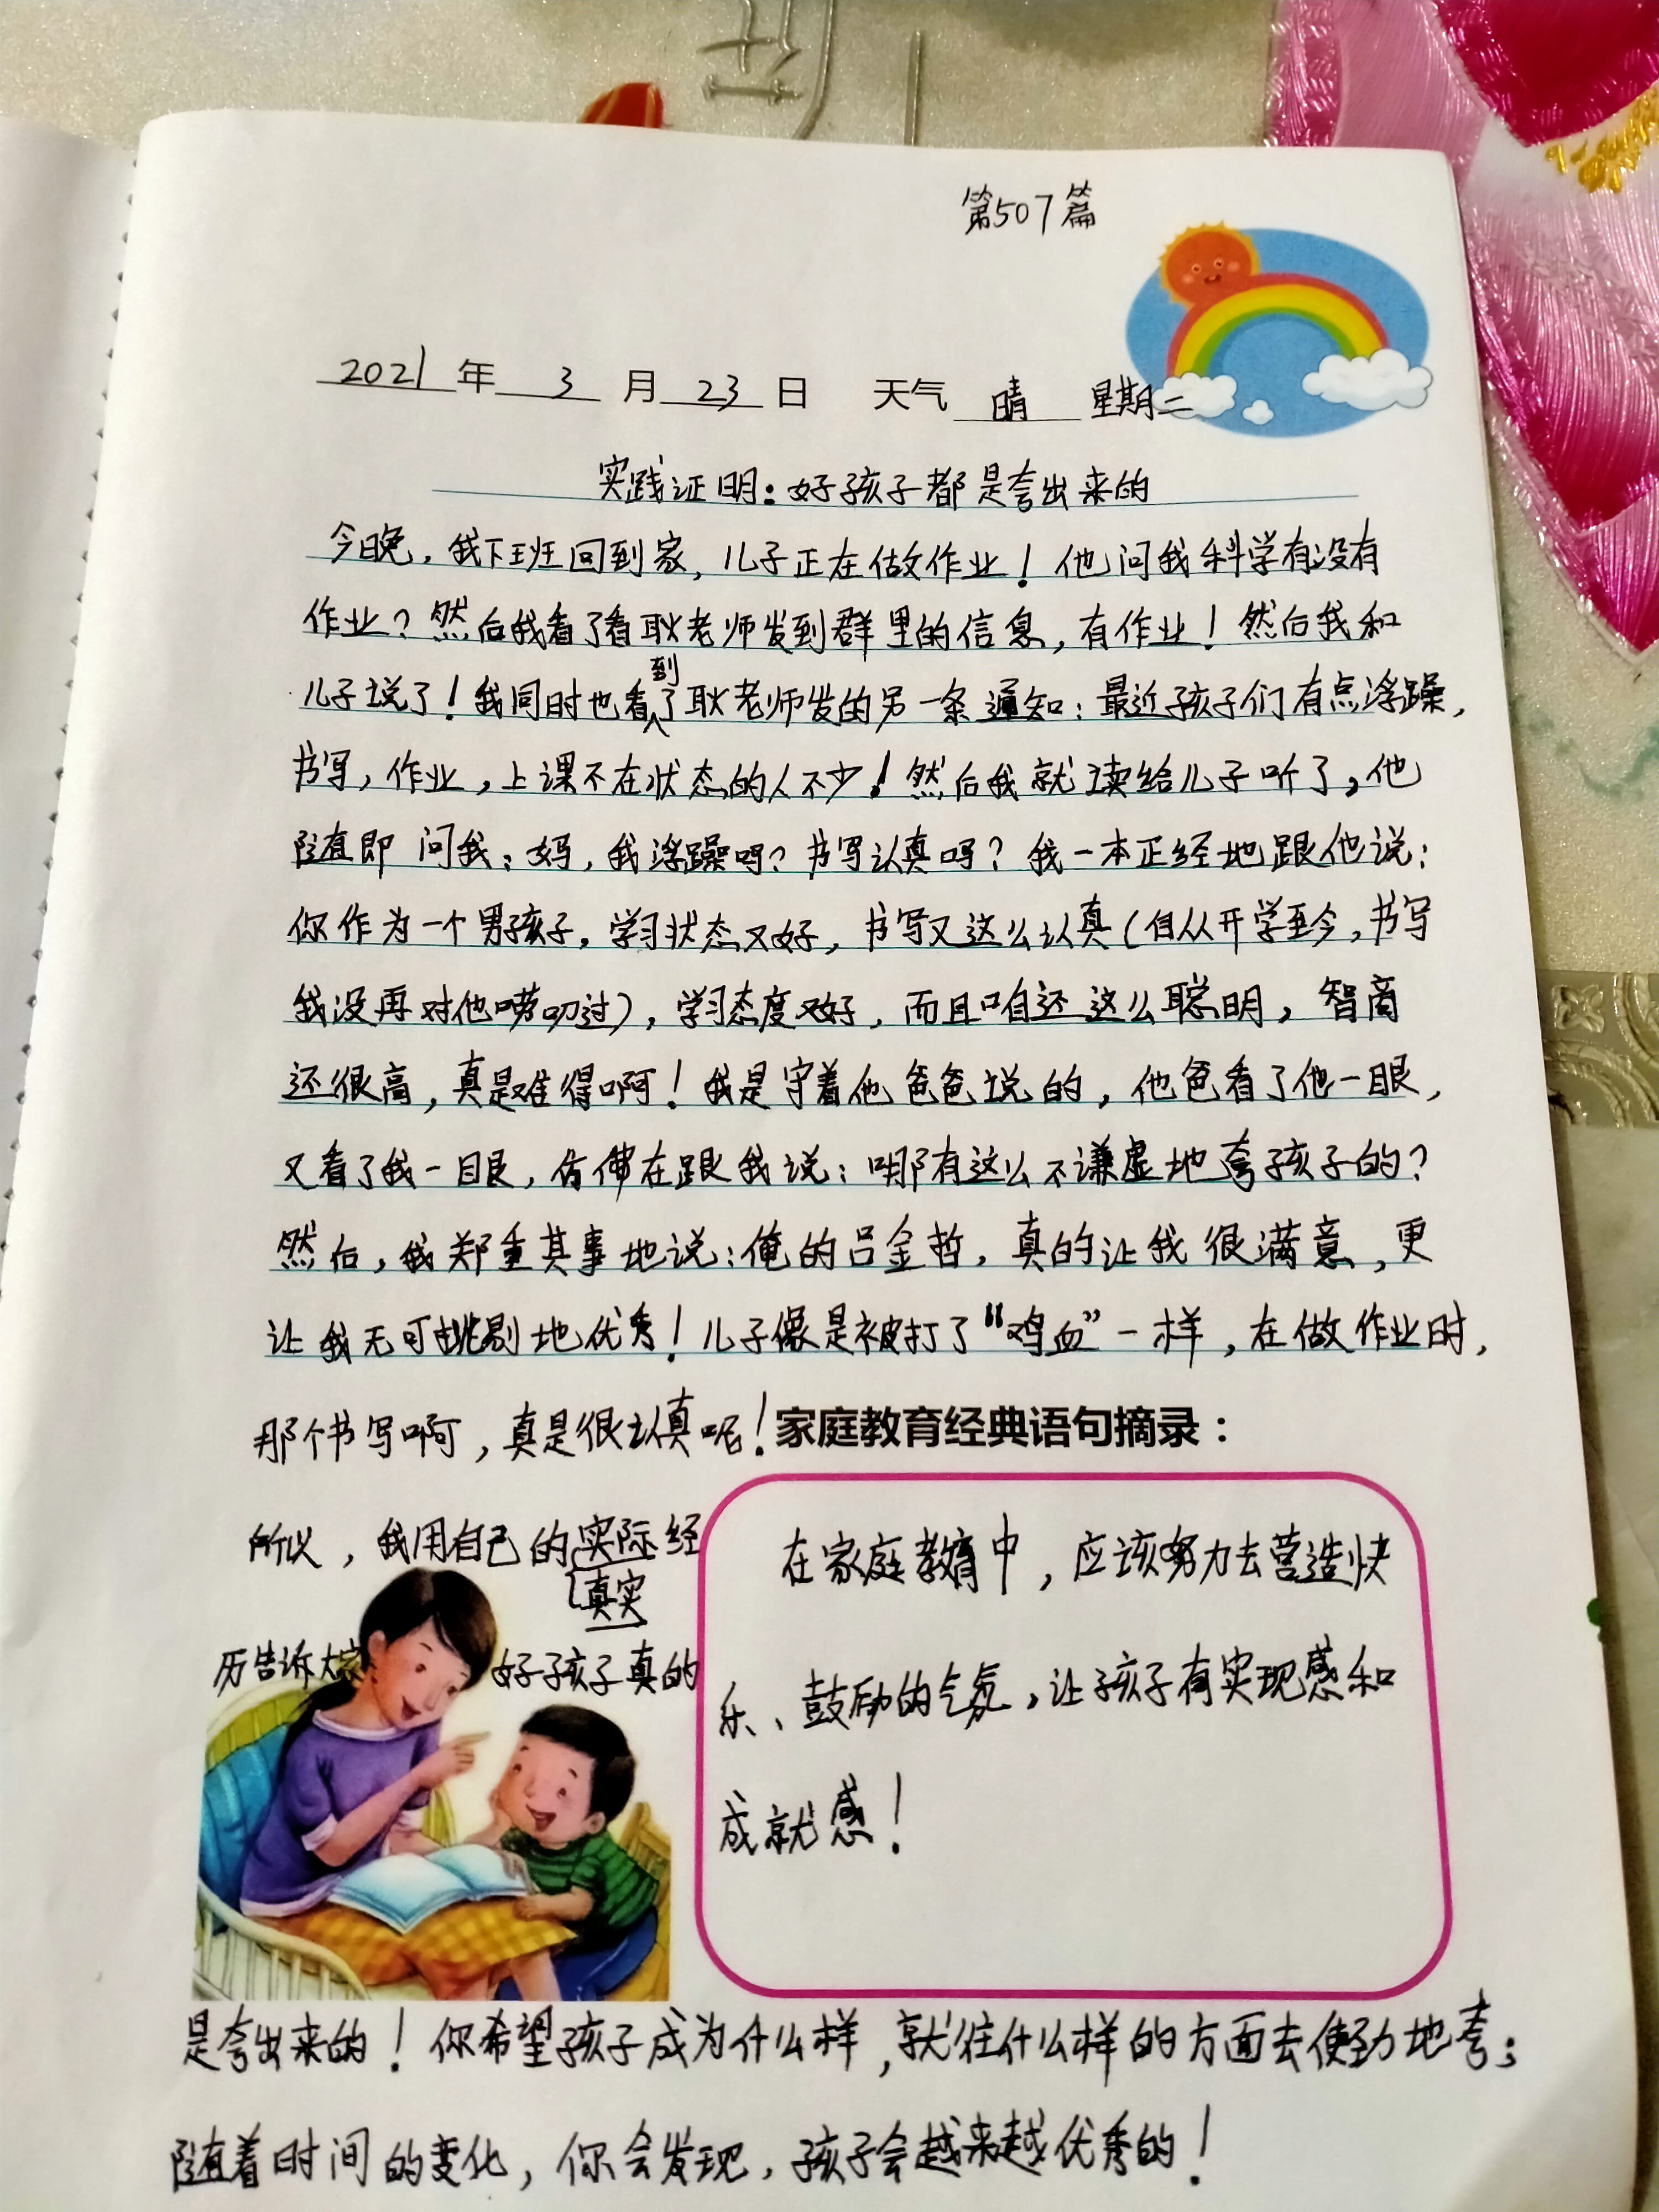 第507篇
2021年 3 月 23 日 天气 晴 星期二
实践证明：好孩子都是夸出来的
今晚，我下班回到家，儿子正在做作业！他问我科学有没有
作业？然后我看了看耿老师发到群里的信息，有作业！然后我和
儿子说了！我同时也看到了耿老师发的另一条通知：最近孩子们有点浮躁，
书写，作业，上课不在状态的人不少！然后我就读给儿子听了，他
随即问我：妈，我浮躁吗？书写认真吗？我一本正经地跟他说：
你作为一个男孩子，学习状态又好，书写又这么认真（自从开学至今，书写
我没再对他唠叨过），学习态度又好，而且咱还这么聪明，智商
还很高，真是难得啊！我是守着他爸爸说的，他爸看了他一眼，
又看了我一眼，仿佛在跟我说：哪有这么不谦虚地夸孩子的？
然后，我郑重其事地说：俺的吕金哲，真的让我很满意，更
让我无可挑剔地优秀！儿子像是被打了“鸡血”一样，在做作业时，
那个书写啊，真是很认真呢！
所以，我用自己的实际经
真实
历告诉大家 好孩子真的
家庭教育经典语句摘录：
在家庭教育中，应该努力去营造快
乐、鼓励的气氛，让孩子有实现感和
成就感！
是夸出来的！你希望孩子成为什么样，就往什么样的方面去使劲地夸；
随着时间的变化，你会发现，孩子会越来越优秀的！